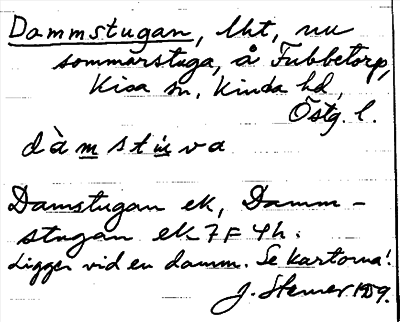 Dammstugan, lht, nu
sommarstuga, å Fubbetorp,
Kisa sn, Kinda hd,
Östg. l.
dàmstúva
Damstugan ek, Damm-
stugan ek 7 F 4h.
Ligger vid en damm. Se kartorna!
J. Stemer 1959.